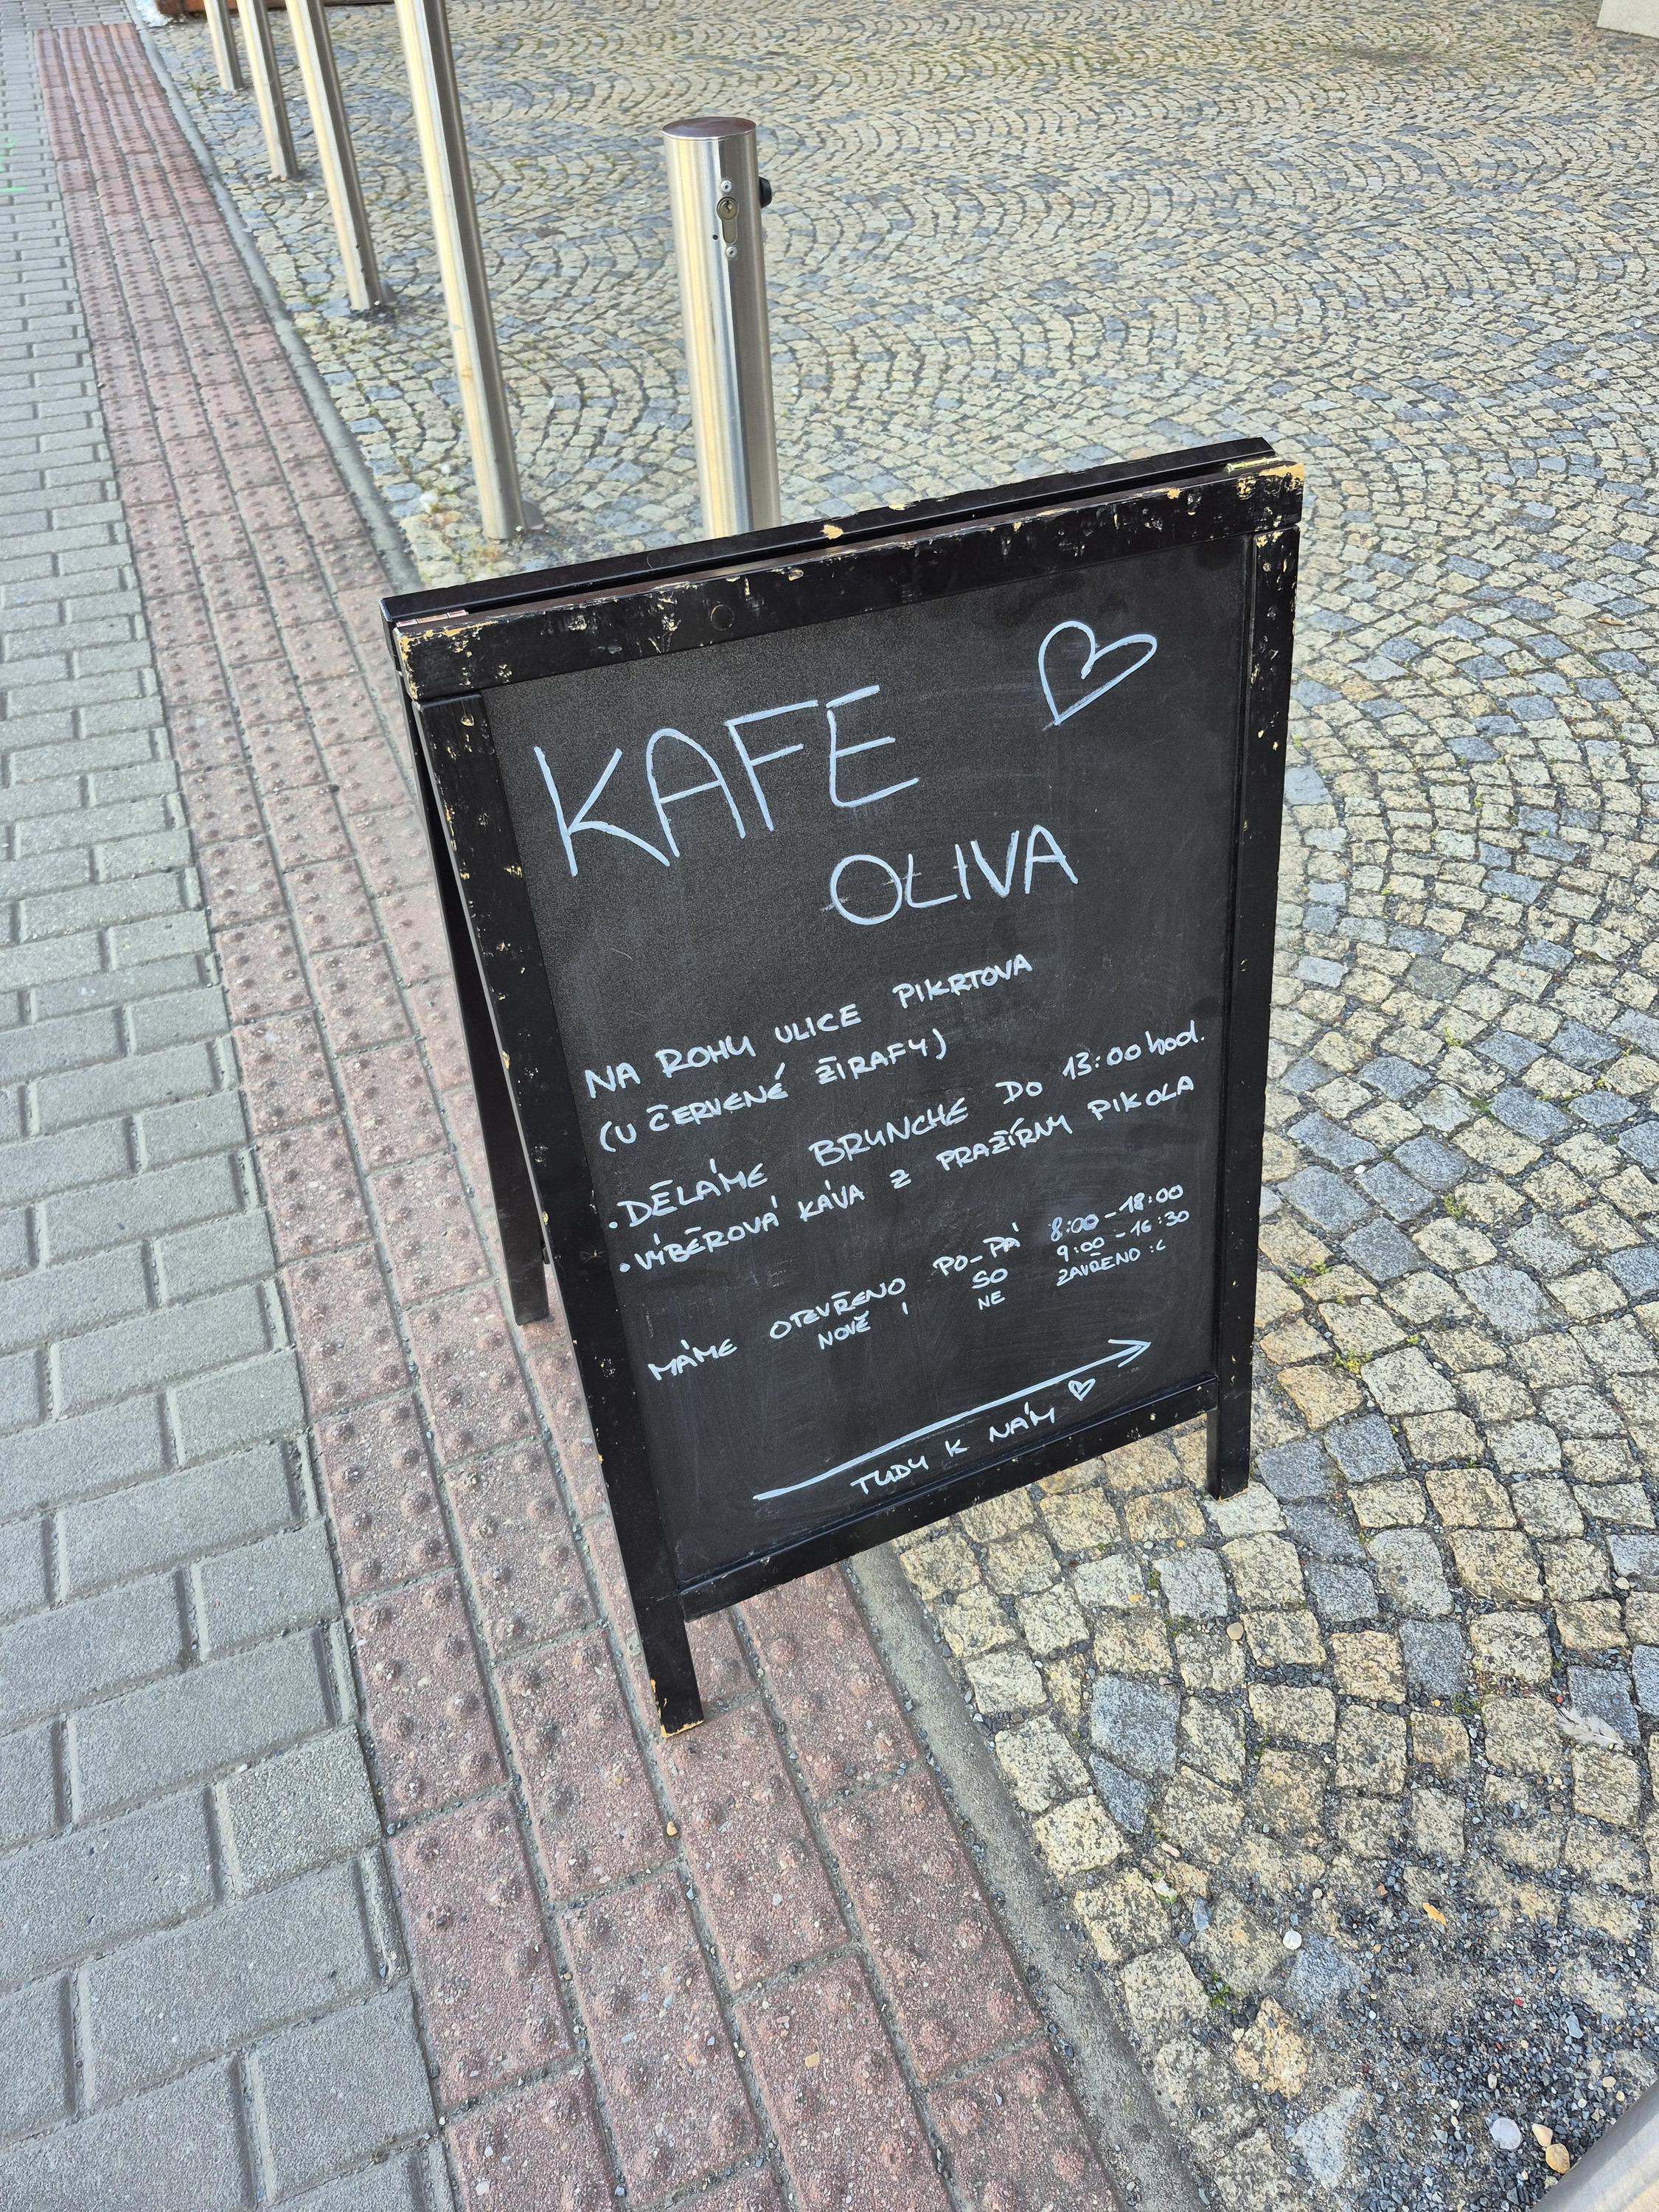 KAFE
OLIVA
NA ROHU ULICE PIKRTOVA
(U ČERVENÉ ŽIRAFY)
• DĚLÁME BRUNCHE DO 13:00 hod.
• VÝBĚROVÁ KÁVA Z PRAŽÍRNY PIKOLA
MÁME OTEVŘENO PO-PÁ 8:00-18:00
NOVĚ I SO 9:00-16:30
NE ZAVŘENO :C
TUDY K NÁM